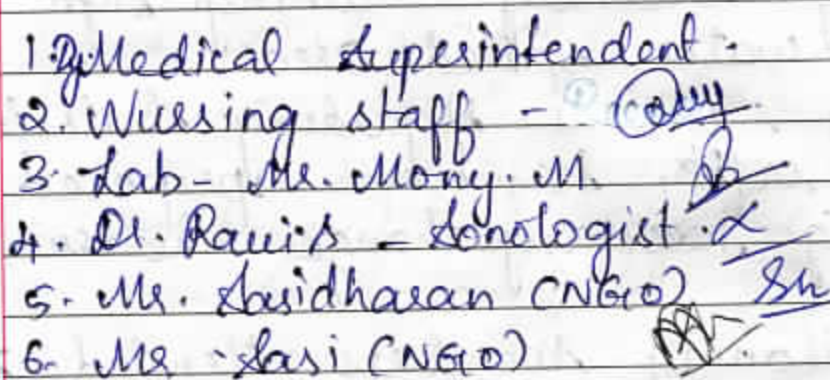 1. Dy Medical Superintendent.
2. Nursing staff -
3. Lab - Mr. Mony. M.
4. Dr. Ravi. S - Sonologist.
5. Mr. Sasidharan (NGO)
6. Mr. Sasi (NGO)